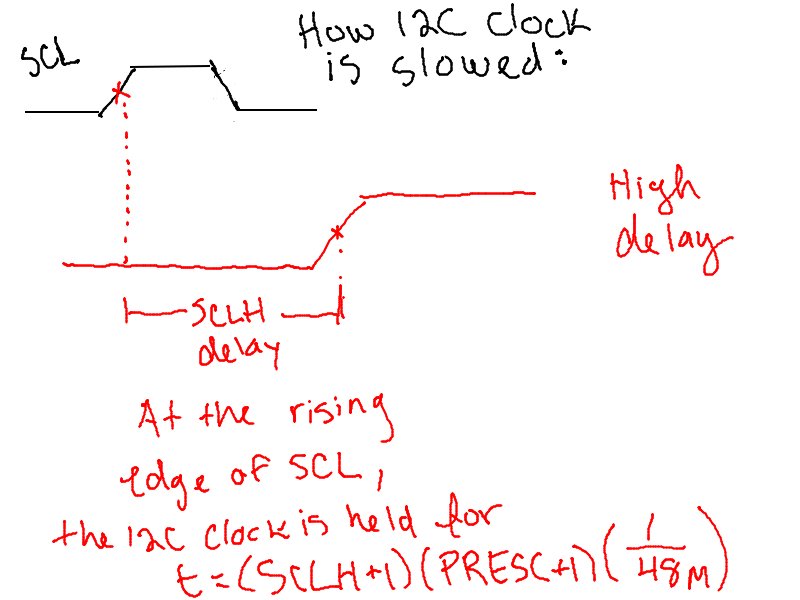 How I2C Clock
is slowed:
SCL
High
delay
SCLH
delay
At the rising
edge of SCL,
the I2C Clock is held for
t=(SCLH+1)(PRESC+1)(1/48M)